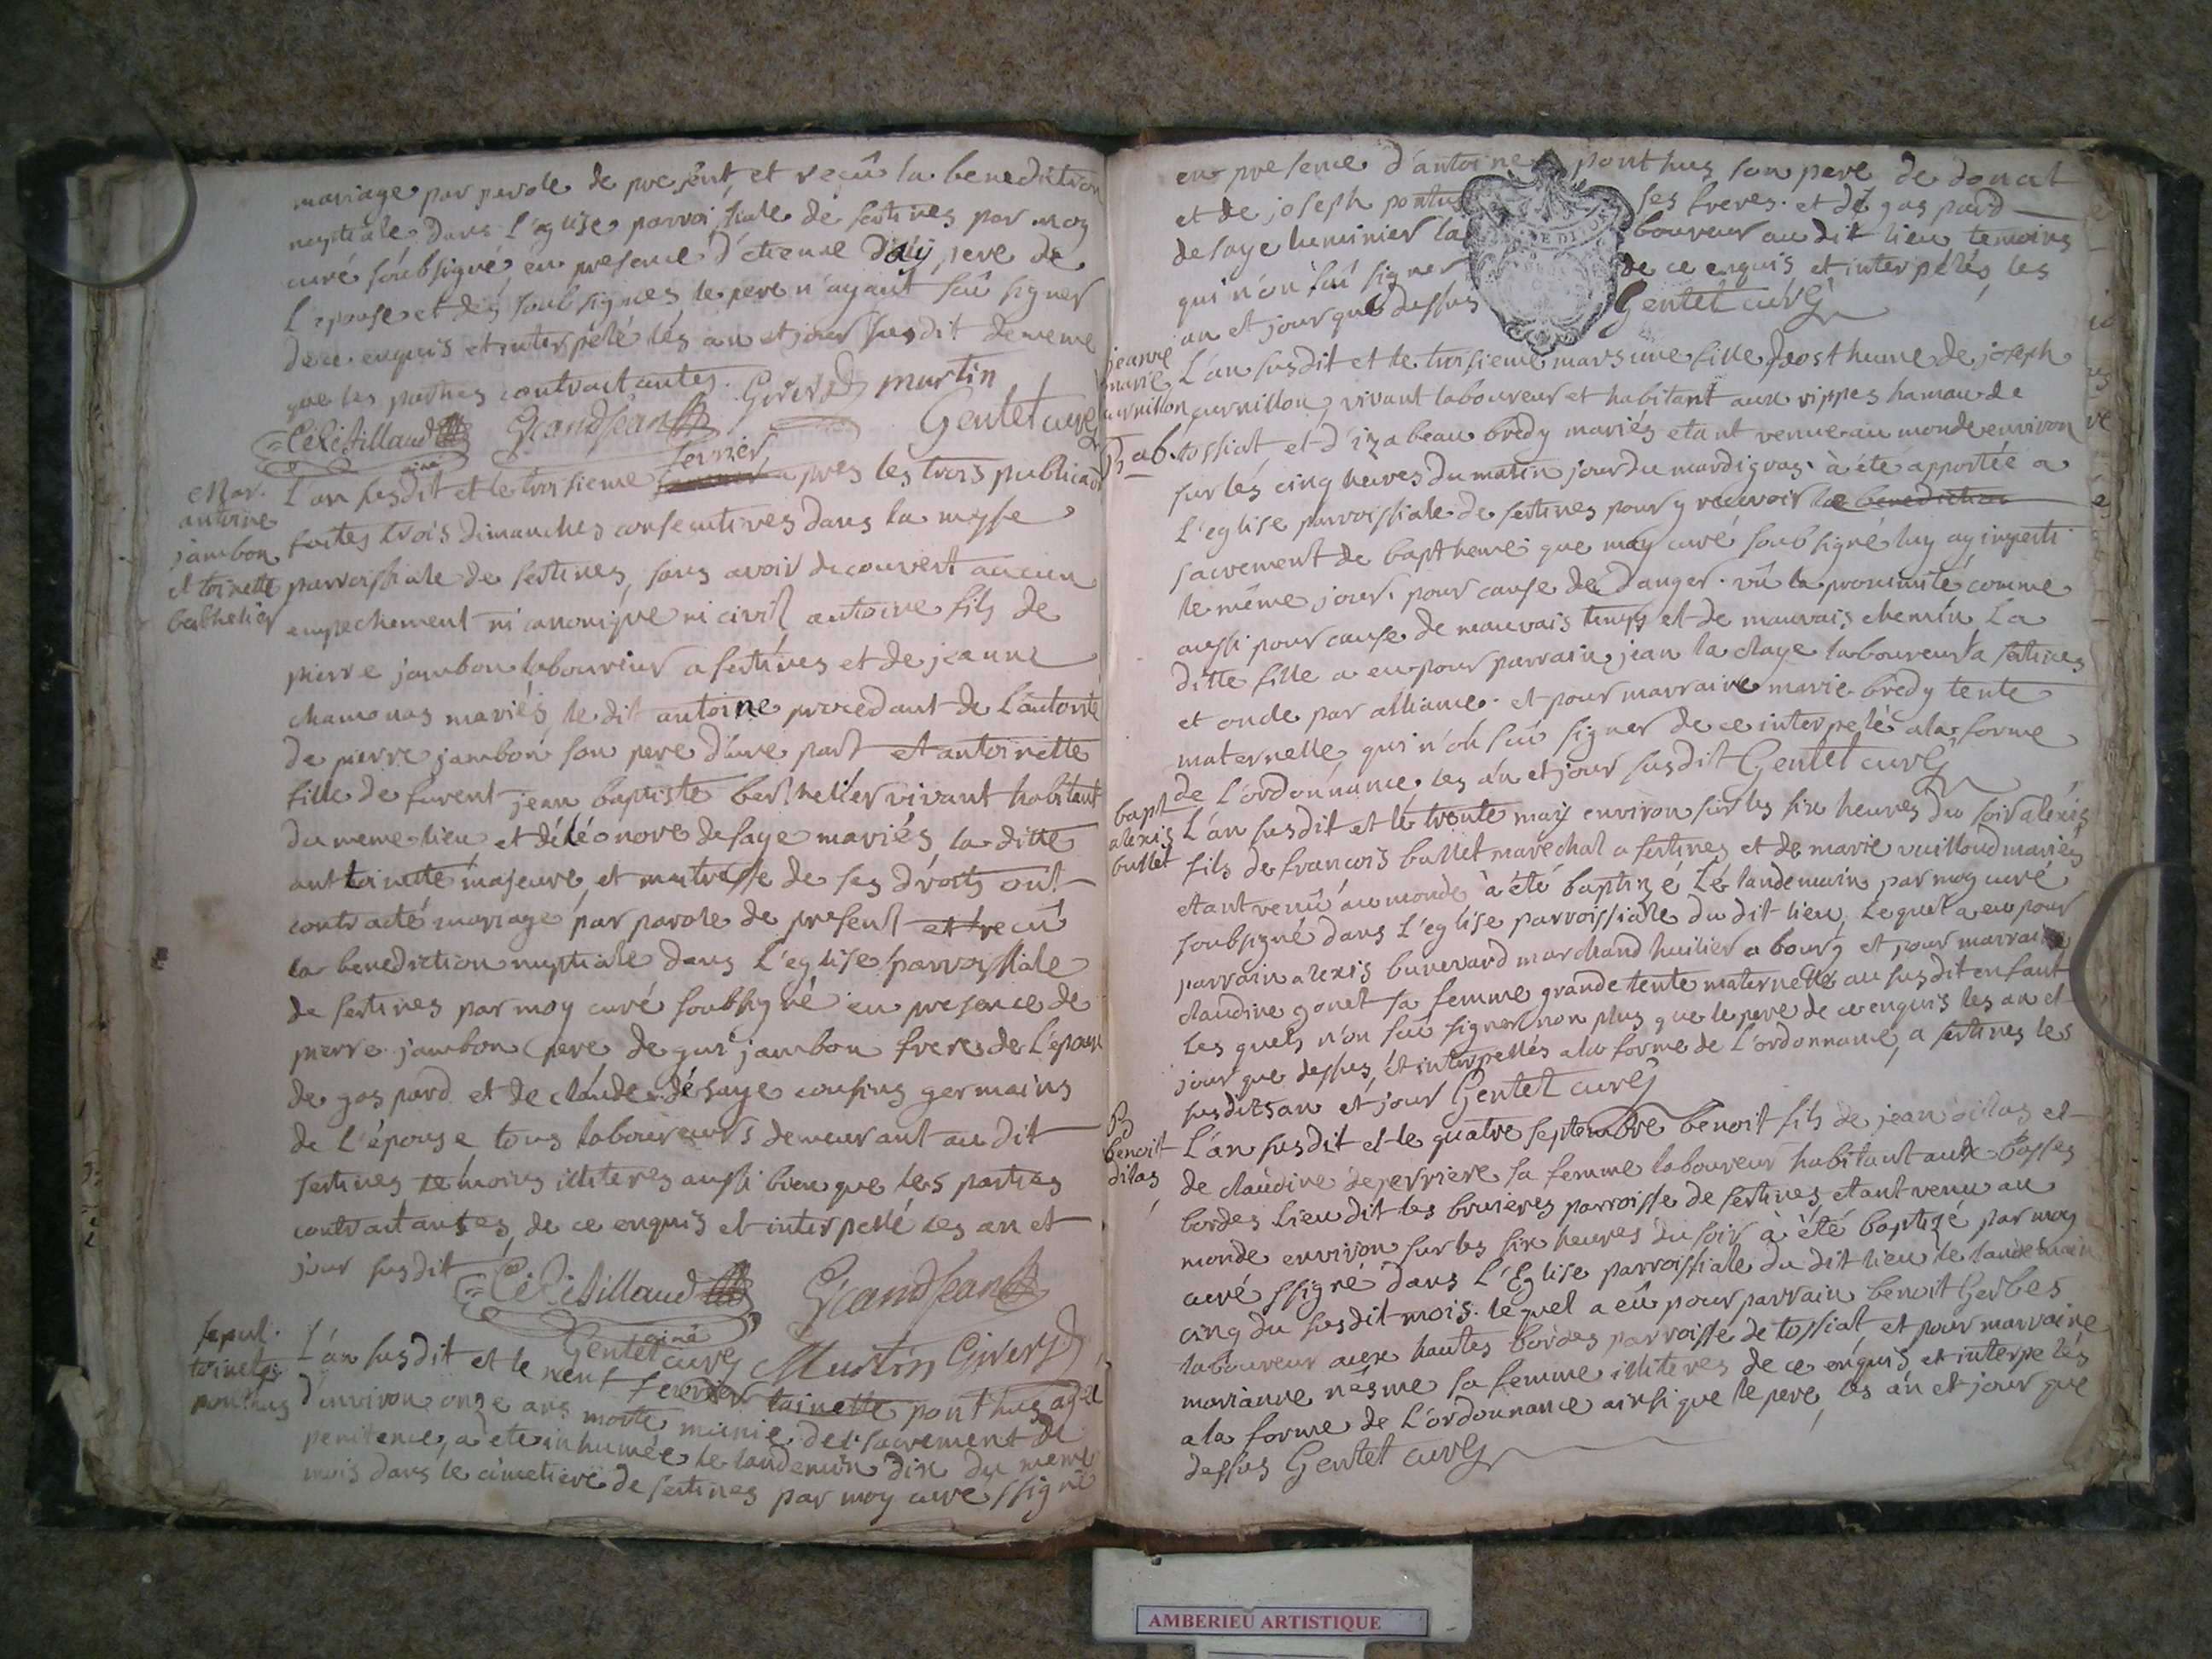 mariage par parole de present et recû la benediction
nuptiale dans l'eglise parroissiale de sertines par moy
curé soubsigné en presence d'etienne pere de
l'epouse et des soubsignes le pere n'ayant sçû signer
de ce enquis et interpélé les an et jour susdit de meme
que les parties contractantes. Girerd martin
Grandjean Gentet curé
Mar.
antoine
jambon
et toinette
berthelier
L'an susdit et le troisieme fevrier apres les trois publicaõns
faites trois dimanches consecutives dans la messe
parroissiale de sertines, sans avoir decouvert aucun
empechement ni canonique ni civil antoine fils de
pierre jambon laboureur a sertines et de jeanne
chamonas mariés, le dit antoine procedant de l'autorité
de pierre jambon son pere d'une part et antoinette
fille de furent jean baptiste berthelier vivant habitant
du meme lieu et déléonore desaye mariés la ditte
anttoinette majeure, et maitresse de ses droits ont
contracté mariage par parole de present et recû
la benediction nuptiale dans l'eglise parroissiale
de sertines par moy curé soubsigné en presence de
pierre jambon pere de gui jambon freres de l'epoux
de gaspard et de claude désaye cousins germains
de l'épouse tous laboureurs demeurant au dit
sertines temoins illiteres aussi bien que les parties
contractantes, de ce enquis et interpellé les an et
jour susdit
Grandjean
Gentet curé Martin Girerd
sepul.
toinette
ponthus
L'an susdit et le neuf fevrier toinette ponthus agée
d'environ onze ans morte munie du sacrement de
penitence, a ete inhumée le landemain dix du meme
mois dans le cimetiere de sertines par moy curé ssigné
en presence d'antoine ponthus son pere de donat
et de joseph pontus ses freres. et de gaspard
desaye luminier laboureur au dit lieu temoins
qui n'on sçû signer de ce enquis et interpélés, les
an et jour que dessus Gentet curé
jeanne
marie
curnillon
Bab.
L'an susdit et le troisieme mars une fille posthume de joseph
curnillon, vivant laboureur et habitant aux rippes hamau de
tossiat et d'izabeau bredy mariés etant venue au monde environ
sur lés cinq heures du matin jour du mardi gras. à été apportée a
l'eglise parroissiale de sertines pour y recevoir le benediction
sacrement de baptheme que moy curé soub signé luy ay imparti
le même jour. pour cause de danger. vû la proximité comme
aussi pour cause de mauvais temps et de mauvais chemin. La
ditte fille a eu pour parrain jean la claye laboureur a sertines
et oncle par alliance. et pour marraine marie bredy tente
maternelle qui n'on sçû signer de ce interpelé a la forme
de l'ordonnance, les an et jour susdit Gentet curé
bapt
alexis
bullet
L'an susdit et le trente may environ sur les six heures du soir aléxis
fils de francois bullet marechal a sertines et de marie vuilloud mariés
etant venû au monde à été baptizé le landemain par moy curé
soubsigné dans l'eglise parroissiale du dit lieu. Lequel a eu pour
parrain alexis bunevard marchand huilier a bourg et pour marraine
claudine gonet sa femme grande tente maternelle au susdit enfant
les quels n'on sçû signer non plus que le pere de ce enquis les an et
jour que dessus, et interpellés a la forme de l'ordonnance, a sertines les
susdits an et jour Gentet curé
B
benoit
dilas
L'an susdit et le quatre septembre benoit fils de jean dilas et
de claudine deperriere sa femme laboureur habitant aux basses
bordes lieu dit les bruieres parroisse de sertines etant venu au
monde environ sur les six heures du soir à été baptizé par moy
curé ssigné dans l'Eglise parroissiale du dit lieu le landemain
cinq du susdit mois. lequel a eû pour parrain benoit Gerbes
laboureur aux hautes bordes parroisse de tossiat, et pour marraine
marianne nésme sa femme illiteres de ce enquis et interpelés
a la forme de l'ordonnance ainsi que le pere, les an et jour que
dessus Gentet curé
AMBERIEU ARTISTIQUE